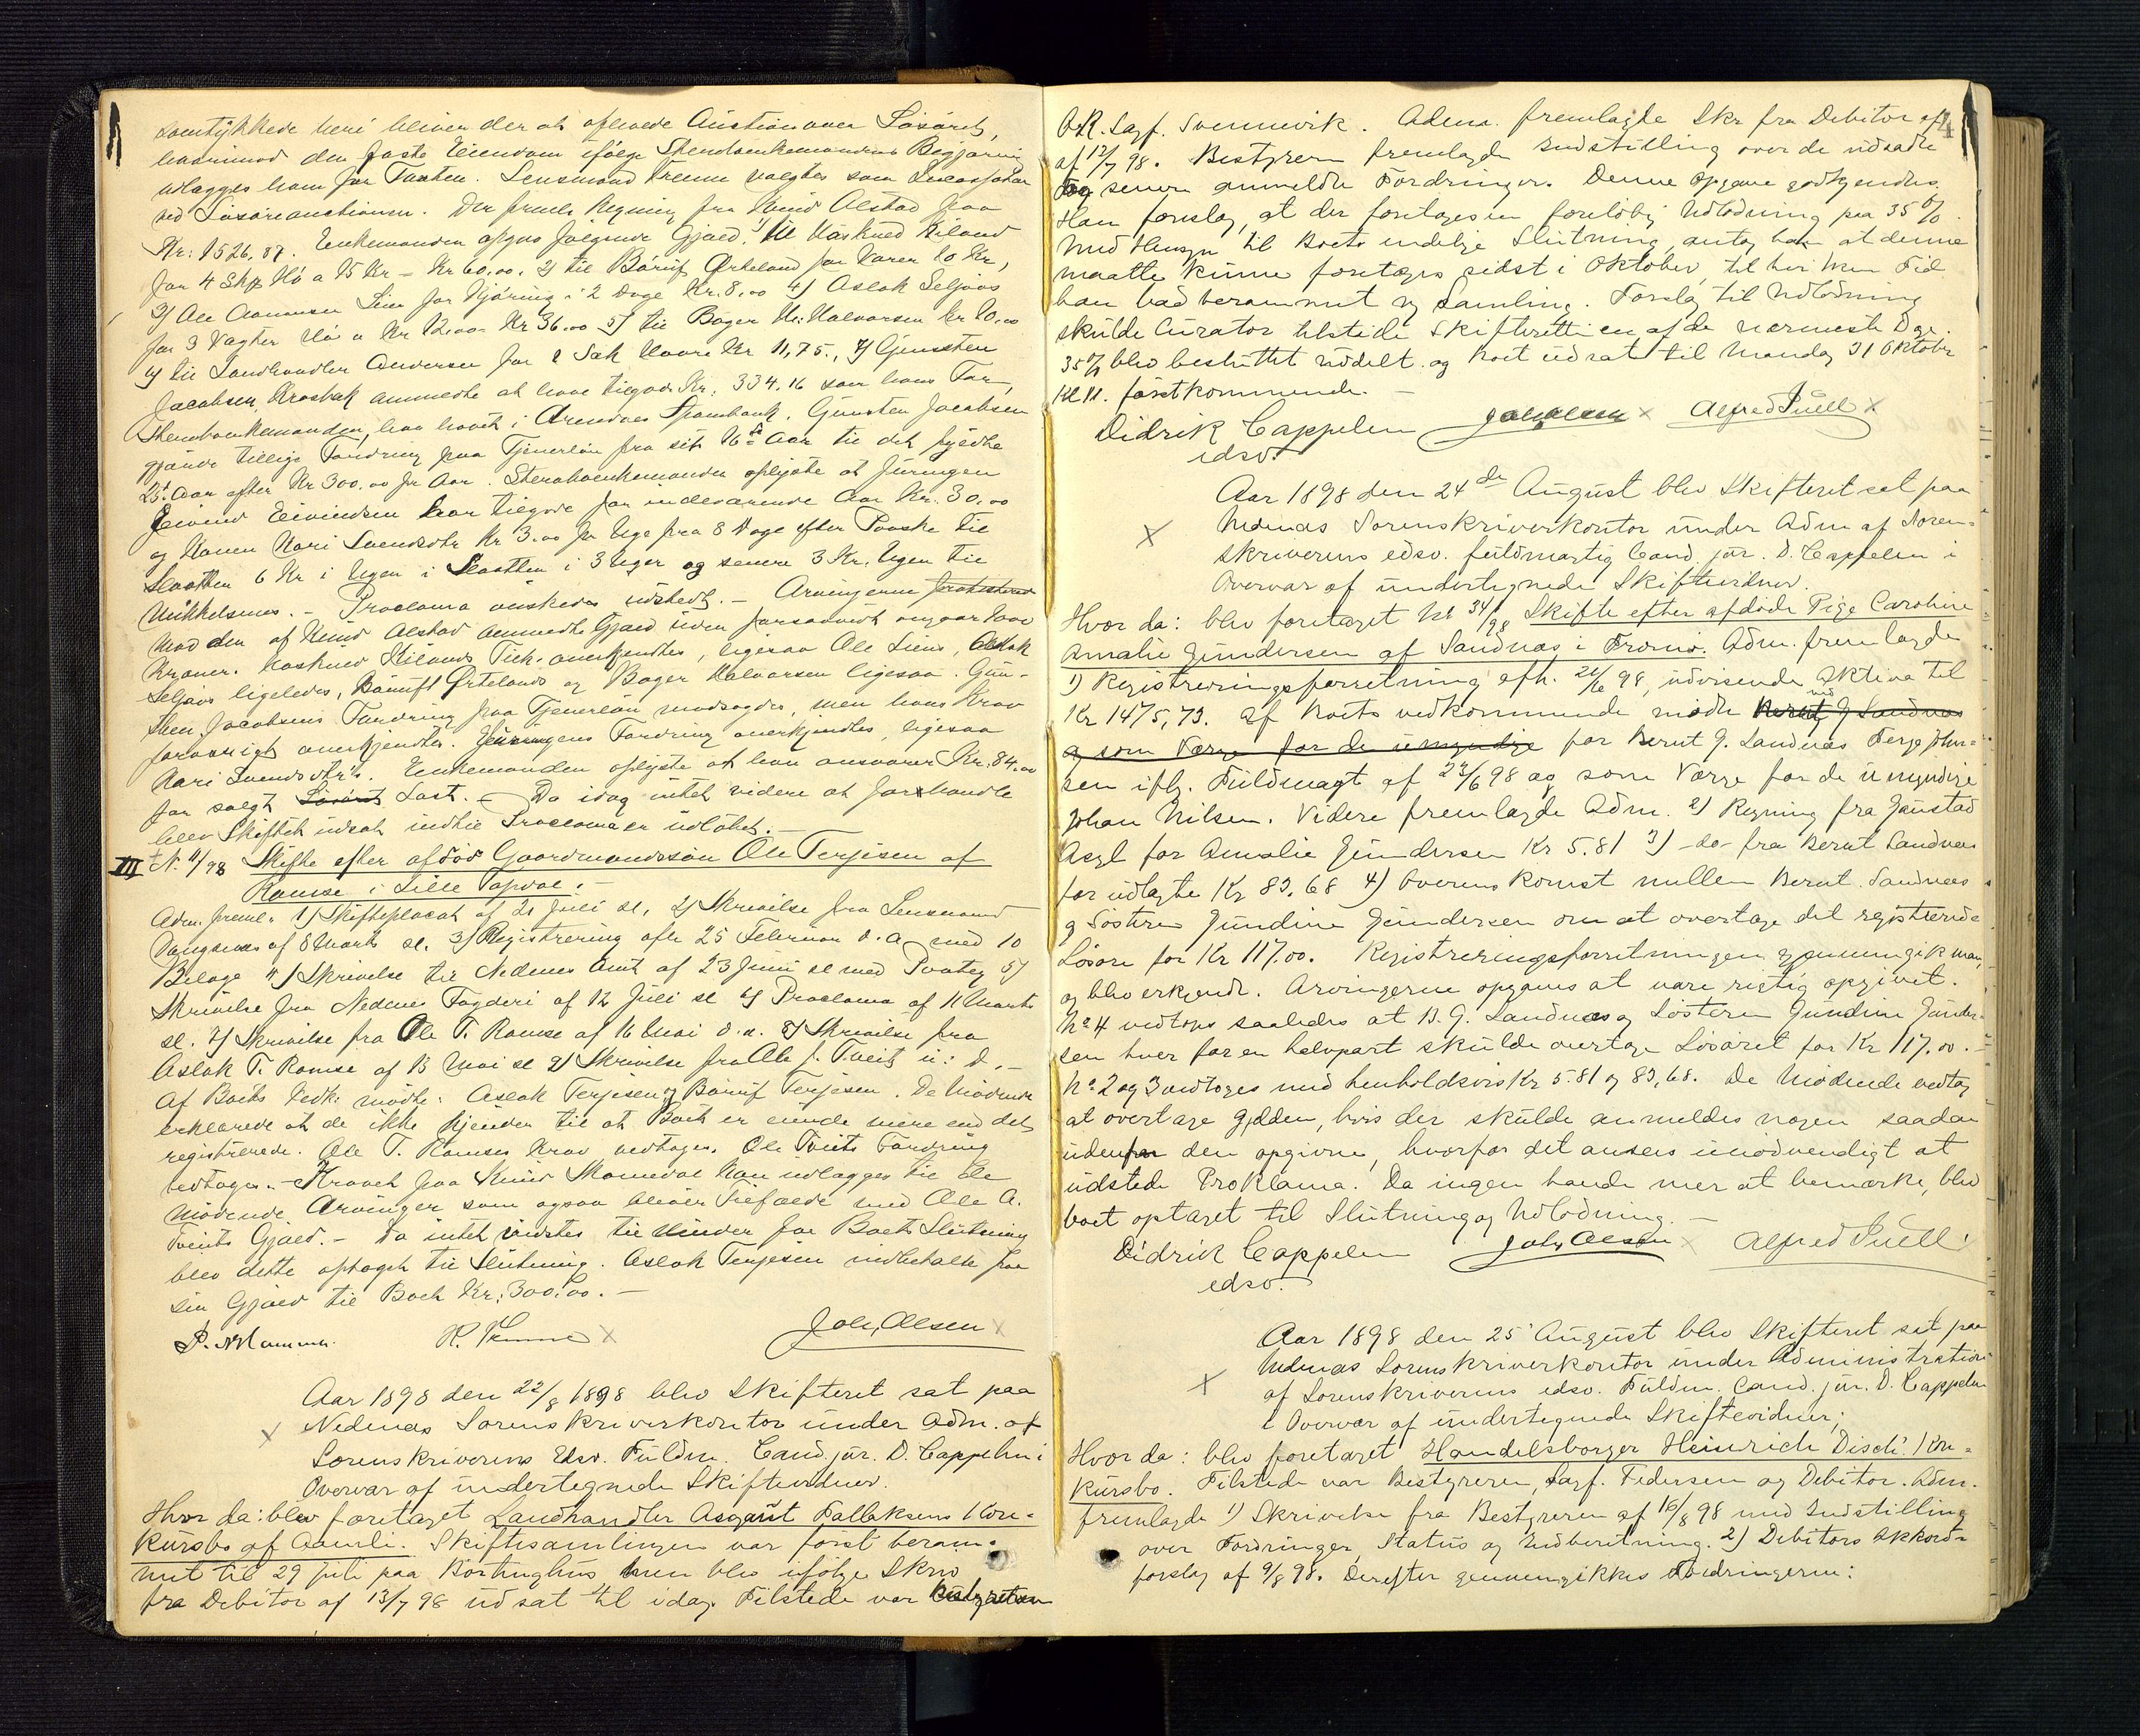 samtykkede heri bliver der at afholde Auction over Løsøret,
hvorimod den faste Eiendom ifølge Sterboenkemandens Begjæring
udlægges ham for Taxten. Lensmand Trenne valgtes som Incassator
ved Løsøreauctionen. Der freml. Regning fra Knud Alstad paa
Kr: 1526.87. Enkemanden opgav følgende Gjæld. 1) til Kasknud Kiland
for 4 Skp Hø a 15 Kr - Kr 60.00. 2) til Bårulf Ørteland for Varer 10 Kr,
3) Ole Aanonsen Lien for Kjøring i 2 Dage Kr. 8.00 4) Aslak Seljaas
for 3 Vægter Hø a Kr 12.00 Kr 36.00 5) til Bager H: Halvorsen Kr 10.00
6) til Landhandler Andersen for 1 Sæk Havre Kr 11,75., 7) Gunsten
Jacobsen, Krosbæk anmeldte at have tilgode Kr. 334.16 som hans Far,
Sterboenkemanden, har hævet i Arendals Sparebank. Gunsten Jacobsen
gjorde tillige Fordring paa Tjenerløn fra sit 16de Aar til det fyldte
25t. Aar efter Kr 300.00 pr Aar. Sterboenkemanden oplyste at Juringen
Eivind Eivindsen har tilgode for indeværende Aar Kr. 30.00
og Konen Kari Svendsdtr Kr 3.00 pr Uge fra 8 Dage efter Paaske til
Slaatten 6 Kr i Ugen i Slaatten i 3 Uger og senere 3 Kr. Ugen til
Mikkelsmes. - Proclama ønskedes udstedt. - Arvingerne protesterede
mod den af Knud Alstad anmeldte Gjæld uden forsaavidt angaar 1000
Kroner. Kasknud Kilands Tilh. anerkjendtes, ligesaa Ole Liens, Aslak
Seljaas ligeledes, Bårulf Ørtelands og Bager Halvorsen ligesaa. Gun-
sten Jacobsens Fordring paa Tjenerløn modsagdes, men hans Krav
forøvrigt anerkjendtes. Juringens Fordring anerkjendtes, ligesaa
Kari Svendsdtr's. Enkemanden oplyste at han ansvarer Kr. 84.00
for solgt Løsøret Last. - Da idag intet videre at forhandle
blev Skiftet udsat indtil Proclama er udløbet. -
III N. 11/98 Skifte efter afdød Gaardmandssøn Ole Terjesen af
Ramse i Lille Topdal. -
Adm. freml. 1) Skifteplacat af 21 Juli sl, 2) Skrivelse fra Lensmand
Vangsnes af 8 Marts sl. 3) Registrering afh 25 Februar d. a. med 10
Bilage 4) Skrivelse til Nedenes Amt af 23 Juni sl med Paateg 5)
Skrivelse fra Nedenes Fogderi af 12 Juli sl 6) Proclama af 11 Marts
sl. 7) Skrivelse fra Ole T. Ramse af 16 Mai d. a. 8) Skrivelse fra
Aslak T. Ramse af 13 Mai sl 9) Skrivelse fra Ole J. Tveit u: d. -
Af Boets Vedk. mødte: Aslak Terjesen og Bårulf Terjesen. De Mødende
erklærede at de ikke kjender til at Boet er eiende mere end det
registrerede. Ole T. Ramses Krav vedtoges. Ole Tveits Fordring
vedtoges. - Kravet paa Knud Monedal kan udlægges til de
mødende Arvinger som ogsaa bliver Tilfælde med Ole A.
Tveits Gjæld. - Da intet vidstes til Hinder for Boets Slutning
blev dette optaget til Slutning. Aslak Terjesen indbetalte paa
sin Gjæld til Boet Kr. 300.00. -
Joh, Olsen
Aar 1898 den 22/8 1898 blev Skifteret sat paa
x Nedenæs Sorenskriverkontor under Adm. af
Sorenskriverens Edsv. Fuldm. Cand. jur. D. Cappelen i
Overvær af undertegnede Skiftevidner.
Hvor da: blev foretaget Landhandler Asgaut Tallaksens Kon-
kursbo af Aamli. Skiftesamlingen var først beram-
met til 29 juli paa Børtinghus men blev ifølge Skriv
fra Debitor af 13/7 98 udsat til idag. Tilstede var Bestyreren
O.R. Sagf. Svennevik. Adm. fremlagde Skr fra Debitor af
af 12/7 98. Bestyreren fremlagde Indstilling over de udsatte
og senere anmeldte Fordringer. Denne Opgave godkjendes.
Han foreslog, at der foretages en foreløbig Udlodning paa 35 %.
Med Hensyn til Boets endelige Slutning, antog han at denne
maatte kunne foretages sidst i Oktober, til hvilken Tid
han bad berammet ny Samling. Forslag til Udlodning
skulde Curator tilstede Skifteretten en af de nærmeste Dage.
35 % blev besluttet uddelt og Boet udsat til Mandag 31 Oktober
Kl 11. førstkommende. -
Didrik Cappelen Joh, Olsen x Alfred Puell x
edsv.
Aar 1898 den 24de August blev Skifteret sat paa
x Nedenæs Sorenskriverkontor under Adm af Soren-
skriverens edsv. fuldmægtig Cand. jur. D. Cappelen i
Overvær af undertegnede Skiftevidner.
Hvor da: blev foretaget No 34/98 Skifte efter afdøde Pige Caroline
Amalie Gundersen af Sandnæs i Tromø. Adm. fremlagde
1) Registreringsforretning afh. 21/6 98, udvisende Aktiva til
Kr 1475,73. Af Boets vedkommende mødte Bernt G. Sandnæs
og som Værge for de umyndige for Bernt G. Sandnæs Terje John-
sen iflg. Fuldmagt af 22/6 98 og som Værge for de umyndige
Johan Nilsen. Videre fremlagde Adm. 2) Regning fra Gaustad
Asyl for Amalie Gundersen Kr 5.81 3) -do- fra Bernt Sandnæs
for udlagte Kr 83.68 4) Overenskomst mellem Bernt Sandnæs
og Søsteren Gundine Gundersen om at overtage det registrerede
Løsøre for Kr 117.00. Registreringsforretningen gjennemgik man,
og blev erkjendt. Arvingerne opgaves at være rigtig opgivet.
No 4 vedtoges saaledes at B. G. Sandnæs og Søsteren Gundine Gunder-
sen hver for en halvpart skulde overtage Løsøret for Kr 117.00. -
No 2 og 3 vedtoges med henholdsvis Kr 5.81 og 83,68. De Mødende vedtog
at overtage Gjælden, hvis der skulde anmeldes nogen saadan
udenfor den opgivne, hvorfor det ansees unødvendigt at
udstede Proklama. Da ingen havde mer at bemærke, blev
boet optaget til Slutning og Udlodning. -
Didrik Cappelen Joh, Olsen x Alfred Puell
edsv.
Aar 1898 den 25' August blev Skifteret sat paa
Nedenæs Sorenskriverkontor under Administration
x af Sorenskriverens edsv. Fuldm. Cand. jur. D. Cappelen
i Overvær af undertegnede Skiftevidner;
Hvor da: blev foretaget Handelsborger Heinrich Disch' Kon-
kursbo. Tilstede var Bestyreren, Sagf. Pedersen og Debitor. Adm.
fremlagde 1) Skrivelse fra Bestyreren af 16/8 98 med Indstilling
over Fordringer, Status og Indberetning. 2) Debitors Akkord-
forslag af 9/8 98. Derefter gjennemgikkes Fordringerne: